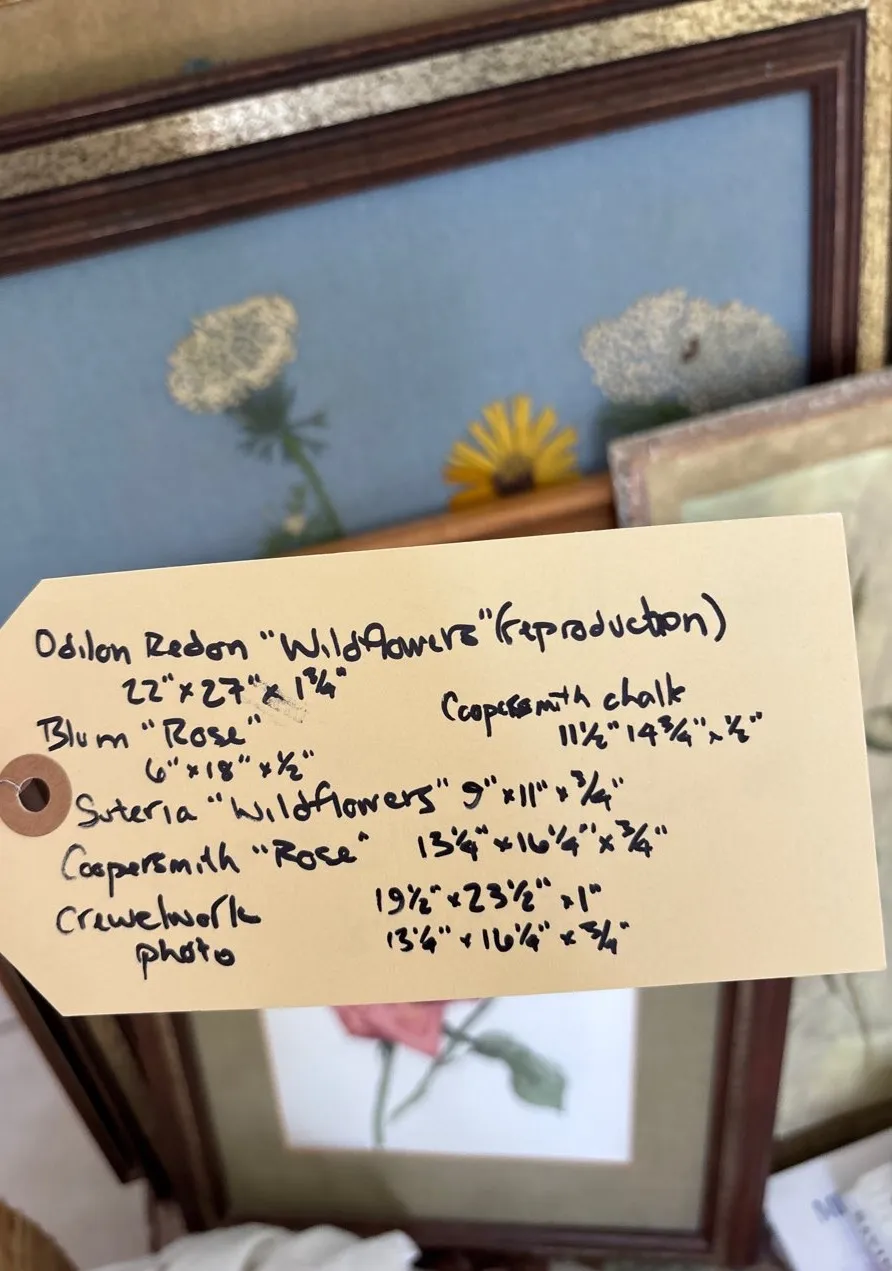 Odilon Redon "Wildflowers" (reproduction)
22" x 27" x 1 3/4"
Coopersmith chalk
11 1/2" 14 3/4" x 1/2"
Blum "Rose"
6" x 18" x 1/2"
Suteria "Wildflowers" 9" x 11" x 3/4"
Coopersmith "Rose" 13 1/4" x 16 1/4" x 3/4"
Crewelwork 19 1/2" x 23 1/2" x 1"
photo 13 1/4" x 16 1/4" x 3/4"